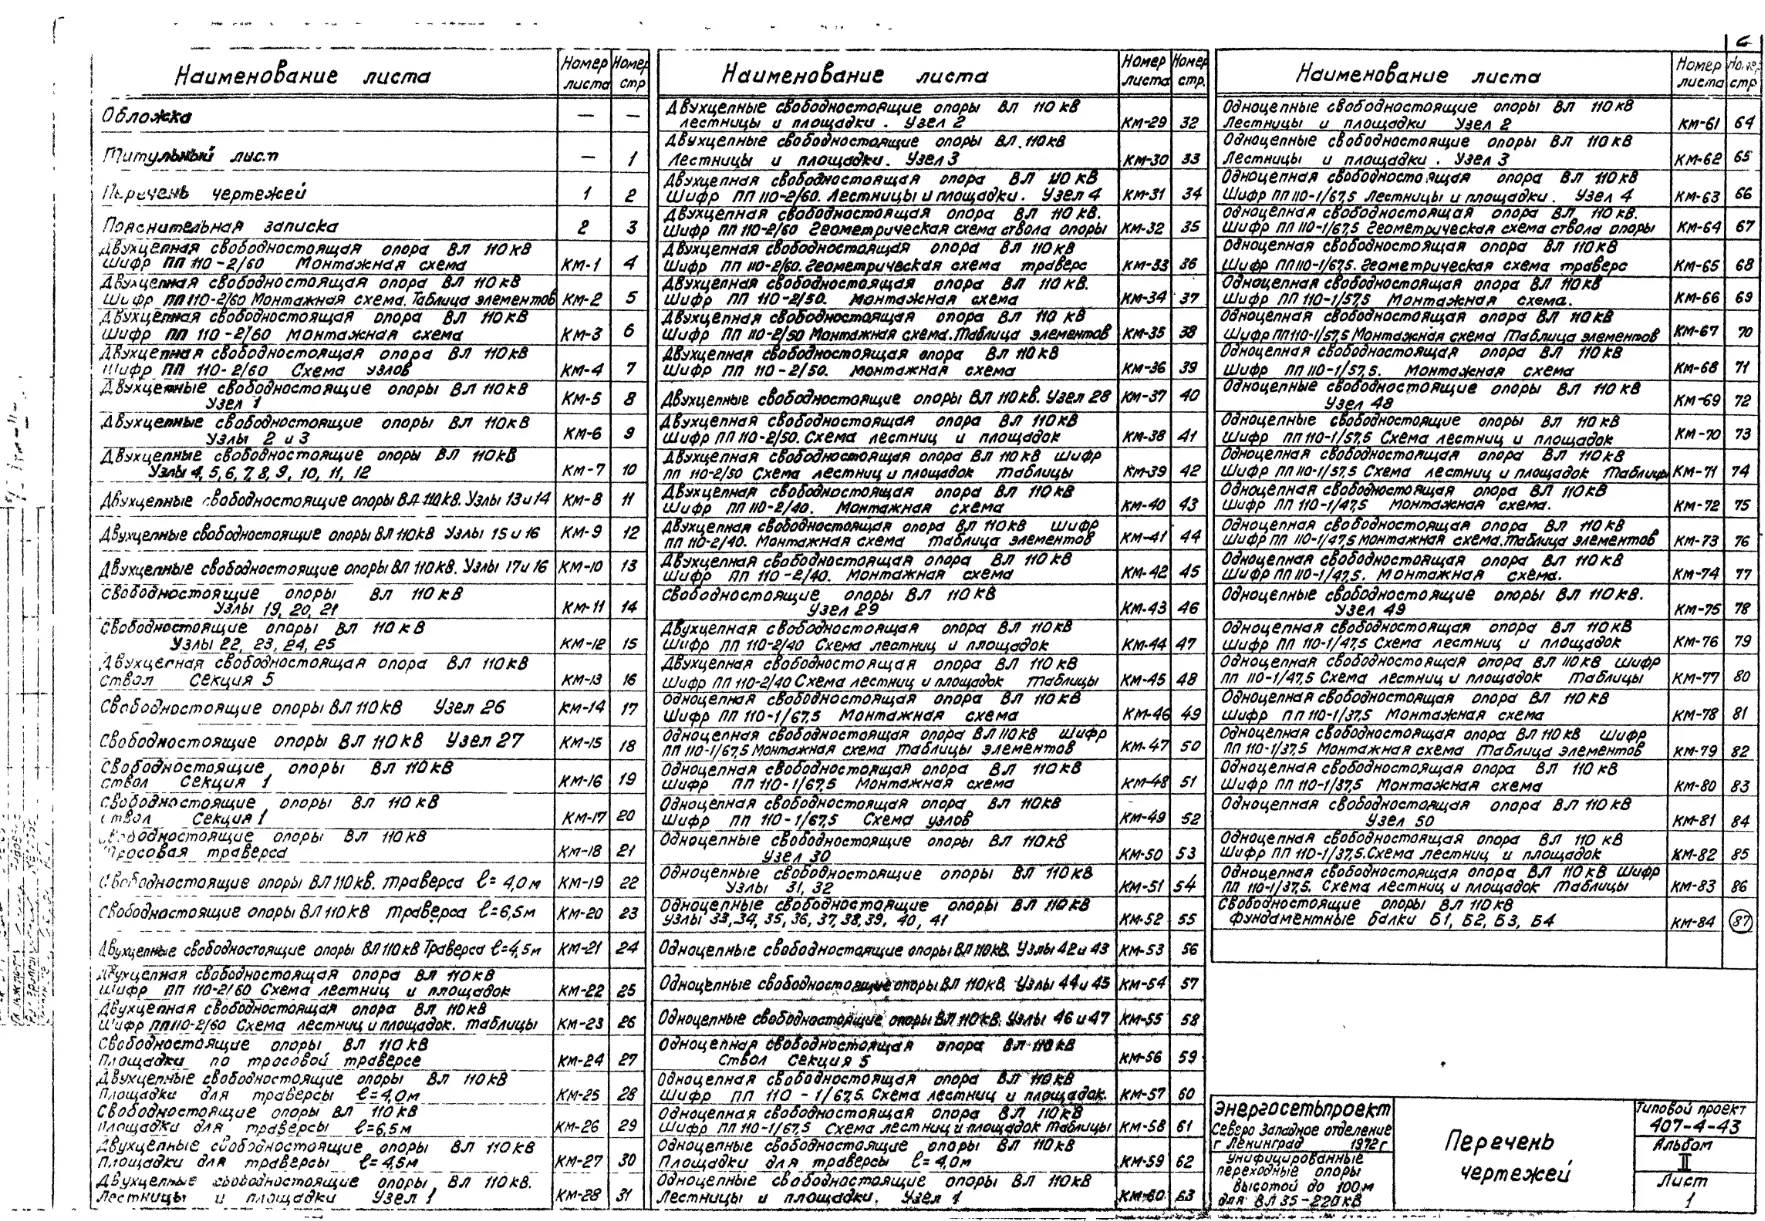 2
Наименование листа
Номер листа
Номер стр
Обложка — —
Титульный лист — 1
Перечень чертежей 1 2
Пояснительная записка 2 3
Двухцепная свободностоящая опора ВЛ 110кВ
Шифр ПП 110-2/60 Монтажная схема КМ-1 4
Двухцепная свободностоящая опора ВЛ 110кВ
Шифр ПП 110-2/60 Монтажная схема. Таблица элементов КМ-2 5
Двухцепная свободностоящая опора ВЛ 110кВ
Шифр ПП 110-2/60 Монтажная схема КМ-3 6
Двухцепная свободностоящая опора ВЛ 110кВ
Шифр ПП 110-2/60 Схема узлов КМ-4 7
Двухцепные свободностоящие опоры ВЛ 110кВ
Узел 1 КМ-5 8
Двухцепные свободностоящие опоры ВЛ 110кВ
Узлы 2 и 3 КМ-6 9
Двухцепные свободностоящие опоры ВЛ 110кВ
Узлы 4, 5, 6, 7, 8, 9, 10, 11, 12 КМ-7 10
Двухцепные свободностоящие опоры ВЛ 110кВ. Узлы 13 и 14 КМ-8 11
Двухцепные свободностоящие опоры ВЛ 110кВ Узлы 15 и 16 КМ-9 12
Двухцепные свободностоящие опоры ВЛ 110кВ. Узлы 17 и 18 КМ-10 13
Свободностоящие опоры ВЛ 110кВ
Узлы 19, 20, 21 КМ-11 14
Свободностоящие опоры ВЛ 110кВ
Узлы 22, 23, 24, 25 КМ-12 15
Двухцепная свободностоящая опора ВЛ 110кВ
Ствол Секция 5 КМ-13 16
Свободностоящие опоры ВЛ 110кВ Узел 26 КМ-14 17
Свободностоящие опоры ВЛ 110кВ Узел 27 КМ-15 18
Свободностоящие опоры ВЛ 110кВ
ствол Секция 1 КМ-16 19
Свободностоящие опоры ВЛ 110кВ
ствол Секция 1 КМ-17 20
Свободностоящие опоры ВЛ 110кВ
Тросовая траверса КМ-18 21
Свободностоящие опоры ВЛ 110кВ. Траверса ℓ=4,0м КМ-19 22
Свободностоящие опоры ВЛ 110кВ Траверса ℓ=6,5м КМ-20 23
Двухцепные свободностоящие опоры ВЛ 110кВ Траверса ℓ=4,5м КМ-21 24
Двухцепная свободностоящая опора ВЛ 110кВ
Шифр ПП 110-2/60 Схема лестниц и площадок КМ-22 25
Двухцепная свободностоящая опора ВЛ 110кВ
Шифр ПП110-2/60 Схема лестниц и площадок. Таблицы КМ-23 26
Свободностоящие опоры ВЛ 110кВ
Площадки по тросовой траверсе КМ-24 27
Двухцепные свободностоящие опоры ВЛ 110кВ
Площадки для траверсы ℓ=4,0м КМ-25 28
Свободностоящие опоры ВЛ 110кВ
площадки для траверсы ℓ=6,5м КМ-26 29
Двухцепные свободностоящие опоры ВЛ 110кВ
Площадки для траверсы ℓ=4,5м КМ-27 30
Двухцепные свободностоящие опоры ВЛ 110кВ.
Лестницы и площадки Узел 1 КМ-28 31
Наименование листа
Номер листа
Номер стр.
Двухцепные свободностоящие опоры ВЛ 110кВ
лестницы и площадки. Узел 2 КМ-29 32
Двухцепные свободностоящие опоры ВЛ. 110кВ
Лестницы и площадки. Узел 3 КМ-30 33
Двухцепная свободностоящая опора ВЛ 110 кВ
Шифр ПП 110-2/60. Лестницы и площадки. Узел 4 КМ-31 34
Двухцепная свободностоящая опора ВЛ 110 кВ.
Шифр ПП 110-2/60 Геометрическая схема ствола опоры КМ-32 35
Двухцепная свободностоящая опора ВЛ 110кВ
Шифр ПП 110-2/60. Геометрическая схема траверс КМ-33 36
Двухцепная свободностоящая опора ВЛ 110кВ.
Шифр ПП 110-2/50. Монтажная схема КМ-34 37
Двухцепная свободностоящая опора ВЛ 110 кВ
Шифр ПП 110-2/50 Монтажная схема. Таблица элементов КМ-35 38
Двухцепная свободностоящая опора ВЛ 110кВ
Шифр ПП 110-2/50. монтажная схема КМ-36 39
Двухцепные свободностоящие опоры ВЛ 110кВ. Узел 28 КМ-37 40
Двухцепная свободностоящая опора ВЛ 110кВ
Шифр ПП 110-2/50. Схема лестниц и площадок КМ-38 41
Двухцепная свободностоящая опора ВЛ 110кВ шифр
ПП 110-2/50 Схема лестниц и площадок Таблицы КМ-39 42
Двухцепная свободностоящая опора ВЛ 110кВ
Шифр ПП 110-2/40. Монтажная схема КМ-40 43
Двухцепная свободностоящая опора ВЛ 110кВ шифр
ПП 110-2/40. Монтажная схема Таблица элементов КМ-41 44
Двухцепная свободностоящая опора ВЛ 110кВ
Шифр ПП 110-2/40. Монтажная схема КМ-42 45
Свободностоящие опоры ВЛ 110кВ
Узел 29 КМ-43 46
Двухцепная свободностоящая опора ВЛ 110кВ
Шифр ПП 110-2/40 Схема лестниц и площадок КМ-44 47
Двухцепная свободностоящая опора ВЛ 110кВ
Шифр ПП 110-2/40 Схема лестниц и площадок Таблицы КМ-45 48
Одноцепная свободностоящая опора ВЛ 110кВ
Шифр ПП 110-1/67,5 Монтажная схема КМ-46 49
Одноцепная свободностоящая опора ВЛ 110кВ шифр
ПП 110-1/67,5 Монтажная схема Таблицы элементов КМ-47 50
Одноцепная свободностоящая опора ВЛ 110кВ
Шифр ПП 110-1/67,5 Монтажная схема КМ-48 51
Одноцепная свободностоящая опора ВЛ 110кВ
Шифр ПП 110-1/67,5 Схема узлов КМ-49 52
Одноцепные свободностоящие опоры ВЛ 110кВ
Узел 30 КМ-50 53
Одноцепные свободностоящие опоры ВЛ 110кВ
Узлы 31, 32 КМ-51 54
Одноцепные свободностоящие опоры ВЛ 110кВ
Узлы 33, 34, 35, 36, 37, 38, 39, 40, 41 КМ-52 55
Одноцепные свободностоящие опоры ВЛ 110кВ. Узлы 42 и 43 КМ-53 56
Одноцепные свободностоящие опоры ВЛ 110кВ. Узлы 44 и 45 КМ-54 57
Одноцепные свободностоящие опоры ВЛ 110кВ. Узлы 46 и 47 КМ-55 58
Одноцепная свободностоящая опора ВЛ 110кВ
Ствол Секция 5 КМ-56 59
Одноцепная свободностоящая опора ВЛ 110кВ
Шифр ПП 110-1/67,5. Схема лестниц и площадок. КМ-57 60
Одноцепная свободностоящая опора ВЛ 110кВ
Шифр ПП 110-1/67,5 Схема лестниц и площадок Таблицы КМ-58 61
Одноцепные свободностоящие опоры ВЛ 110кВ
Площадки для траверсы ℓ=4,0м КМ-59 62
Одноцепные свободностоящие опоры ВЛ 110кВ
Лестницы и площадки. Узел 1 КМ-60 63
Наименование листа
Номер листа
Номер стр
Одноцепные свободностоящие опоры ВЛ 110кВ
Лестницы и площадки Узел 2 КМ-61 64
Одноцепные свободностоящие опоры ВЛ 110кВ
Лестницы и площадки. Узел 3 КМ-62 65
Одноцепная свободностоящая опора ВЛ 110кВ
Шифр ПП 110-1/67,5 Лестницы и площадки. Узел 4 КМ-63 66
Одноцепная свободностоящая опора ВЛ 110кВ.
Шифр ПП 110-1/67,5 Геометрическая схема ствола опоры КМ-64 67
Одноцепная свободностоящая опора ВЛ 110кВ
Шифр ПП110-1/67,5. Геометрическая схема траверс КМ-65 68
Одноцепная свободностоящая опора ВЛ 110кВ
Шифр ПП 110-1/57,5 Монтажная схема. КМ-66 69
Одноцепная свободностоящая опора ВЛ 110кВ
Шифр ПП110-1/57,5 Монтажная схема Таблица элементов КМ-67 70
Одноцепная свободностоящая опора ВЛ 110кВ
Шифр ПП 110-1/57,5. Монтажная схема КМ-68 71
Одноцепные свободностоящие опоры ВЛ 110кВ
Узел 48 КМ-69 72
Одноцепные свободностоящие опоры ВЛ 110кВ
Шифр ПП 110-1/57,5 Схема лестниц и площадок КМ-70 73
Одноцепная свободностоящая опора ВЛ 110кВ
Шифр ПП 110-1/57,5 Схема лестниц и площадок Таблицы КМ-71 74
Одноцепная свободностоящая опора ВЛ 110кВ
Шифр ПП 110-1/47,5 Монтажная схема. КМ-72 75
Одноцепная свободностоящая опора ВЛ 110кВ
Шифр ПП 110-1/47,5 Монтажная схема. Таблица элементов КМ-73 76
Одноцепная свободностоящая опора ВЛ 110кВ
Шифр ПП 110-1/47,5. Монтажная схема. КМ-74 77
Одноцепные свободностоящие опоры ВЛ 110кВ.
Узел 49 КМ-75 78
Одноцепная свободностоящая опора ВЛ 110кВ
Шифр ПП 110-1/47,5 Схема лестниц и площадок КМ-76 79
Одноцепная свободностоящая опора ВЛ 110кВ Шифр
ПП 110-1/47,5 Схема лестниц и площадок Таблицы КМ-77 80
Одноцепная свободностоящая опора ВЛ 110кВ
шифр ПП 110-1/37,5 Монтажная схема КМ-78 81
Одноцепная свободностоящая опора ВЛ 110кВ Шифр
ПП 110-1/37,5 Монтажная схема Таблица элементов КМ-79 82
Одноцепная свободностоящая опора ВЛ 110кВ
Шифр ПП 110-1/37,5 Монтажная схема КМ-80 83
Одноцепная свободностоящая опора ВЛ 110кВ
Узел 50 КМ-81 84
Одноцепная свободностоящая опора ВЛ 110 кВ
Шифр ПП 110-1/37,5. Схема лестниц и площадок КМ-82 85
Одноцепная свободностоящая опора ВЛ 110кВ Шифр
ПП 110-1/37,5. Схема лестниц и площадок Таблицы КМ-83 86
Свободностоящие опоры ВЛ 110кВ
Фундаментные балки Б1, Б2, Б3, Б4 КМ-84 87
Энергосетьпроект
Северо Западное отделение
г Ленинград 1972г
Унифицированные
переходные опоры
высотой до 100м
для ВЛ 35-220кВ
Перечень
чертежей
Типовой проект
407-4-43
Альбом
II
Лист
1